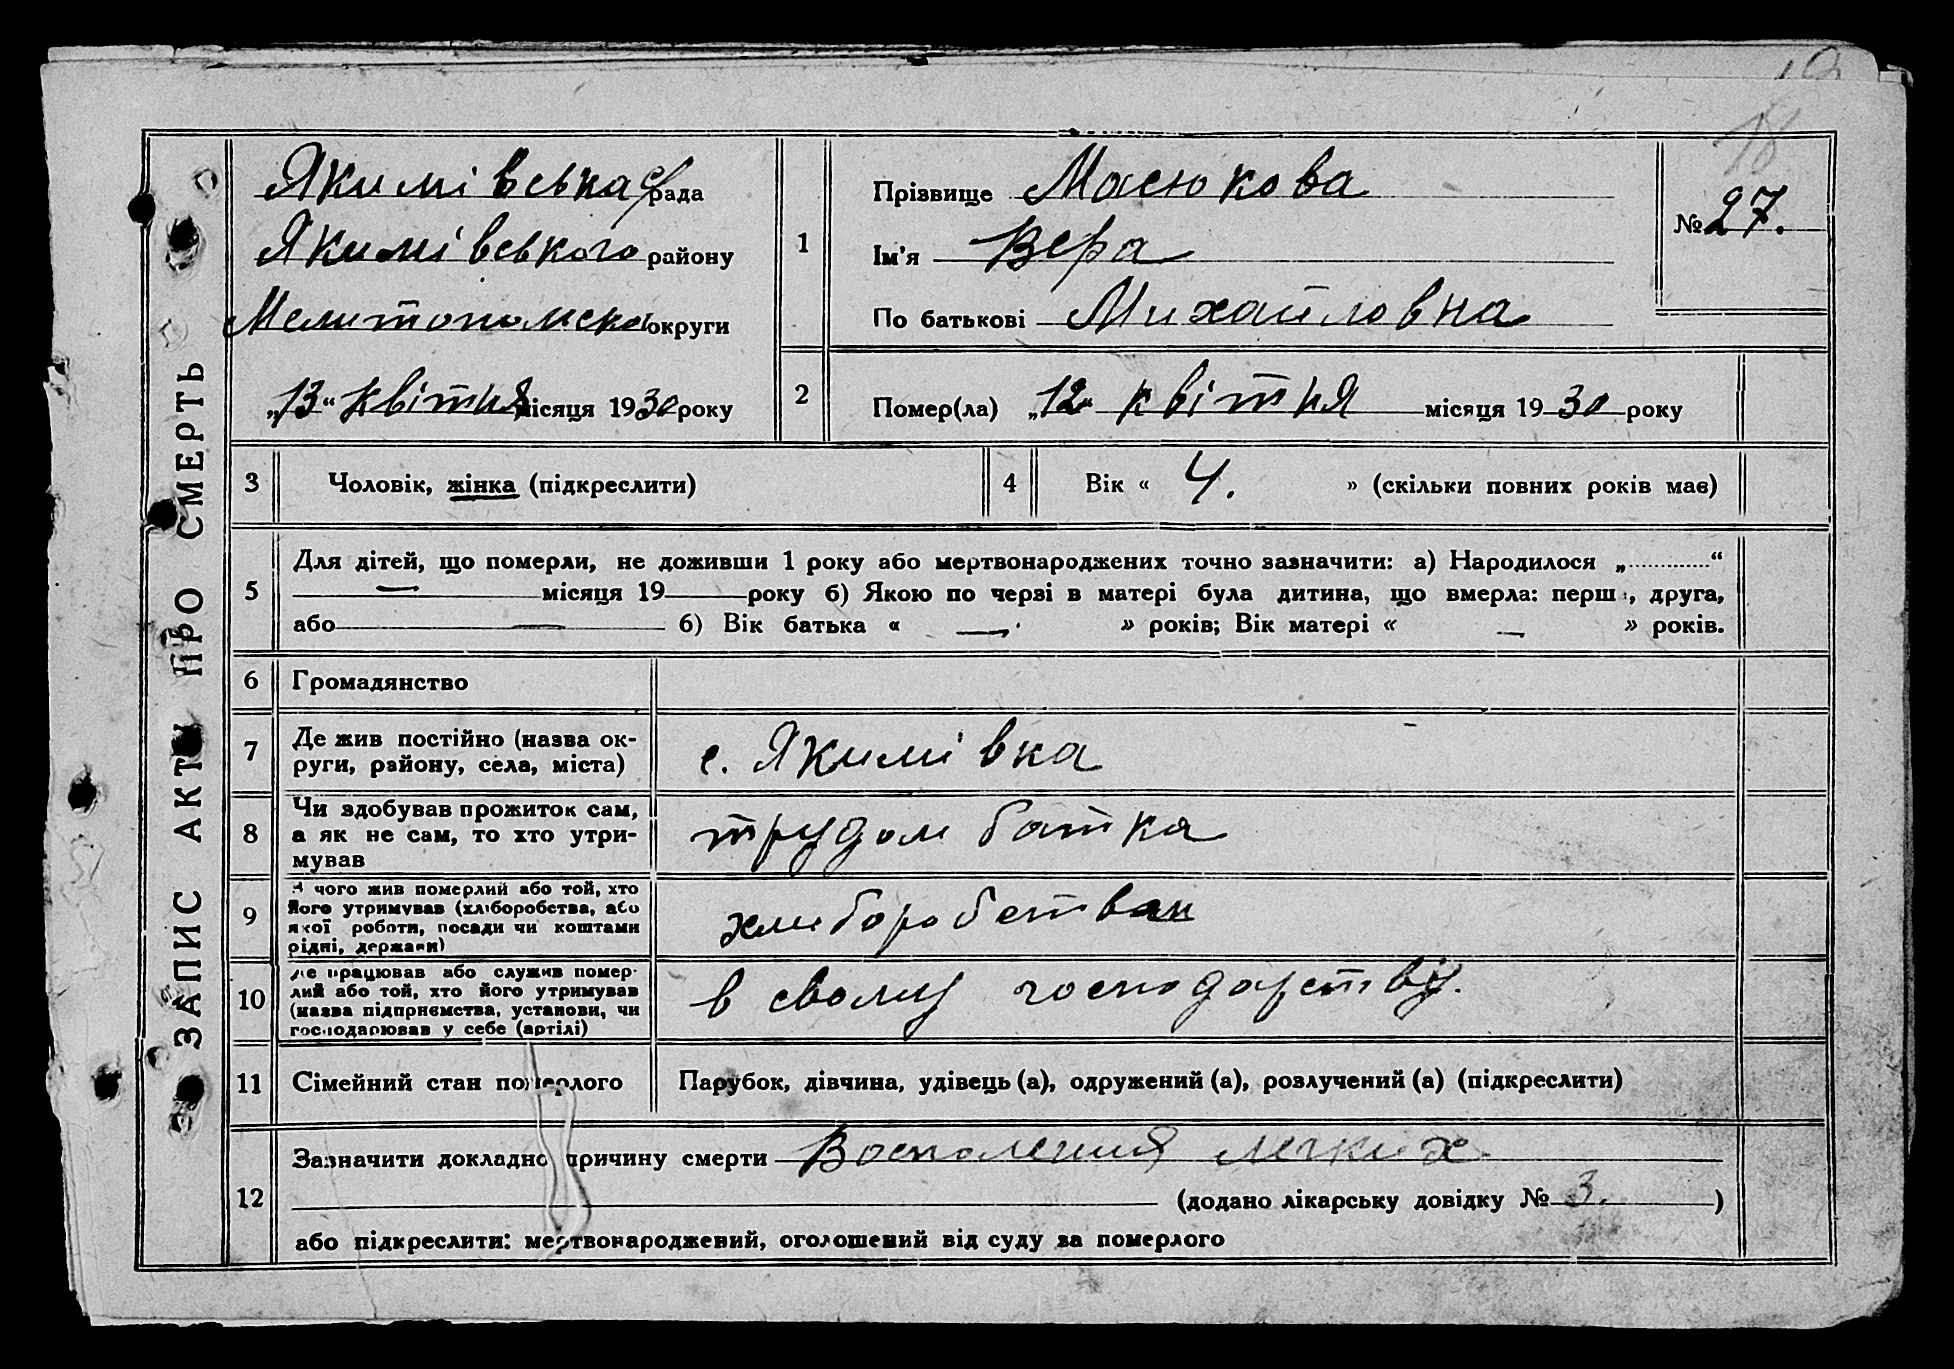 18
ЗАПИС АКТУ ПРО СМЕРТЬ
Якимівська с/рада
Якимівського району
округи
„13“ квітня місяця 1930 року
1
Прізвище Масюкова
Ім'я Вера
По батькові Михайловна
№ 27.
2
Помер(ла) „12“ квітня місяця 1930 року
3
Чоловік, жінка (підкреслити)
4
Вік « 4. » (скільки повних років має)
5
Для дітей, що померли, не доживши 1 року або мертвонароджених точно зазначити: а) Народилося „ “
— місяця 19 року б) Якою по черзі в матері була дитина, що вмерла: перша, друга,
або — б) Вік батька « — » років; Вік матері « — » років.
6
Громадянство
7
Де жив постійно (назва ок-
руги, району, села, міста)
с. Якимівка
8
Чи здобував прожиток сам,
а як не сам, то хто утри-
мував
трудом батка
9
З чого жив померлий або той, хто
його утримував (хліборобства, або
якої роботи, посади чи коштами
рідні, держави)
10
Де працював або служив помер-
лий або той, хто його утримував
(назва підприємства, установи, чи
господарював у себе (артілі)
в своему господарстві.
11
Сімейний стан померлого
Парубок, дівчина, удівець (а), одружений (а), розлучений (а) (підкреслити)
12
Зазначити докладно причину смерти Воспаления легких
(додано лікарську довідку № 3. )
або підкреслити: мертвонароджений, оголошений від суду за померлого